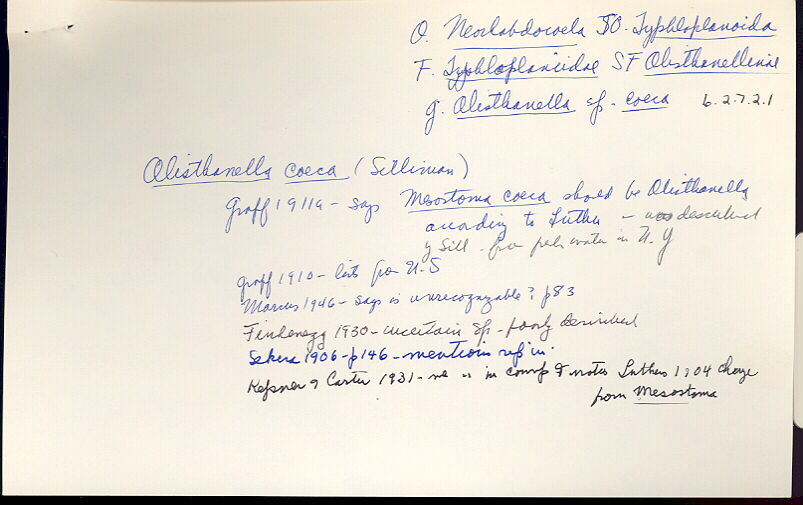 O. Neorhabdocoela SO. Typhloplanoida
F. Typhloplanidae SF Olisthanellinae
g. Olisthanella sp. coeca 6.2.7.2.1
Olisthanella coeca (Silliman)
Graff 1911a - says Mesostoma coeca should be Olisthanella
according to Luther - was described
by Sill. from fresh water in N.Y
Graff 1910 - lists from U.S
Marcus 1946 - says is unrecognizable? p83
Findenegg 1930 - uncertain sp - poorly described
Sekera 1906 - p146 - mentions
Kepner & Carter 1931 - in & notes Luther 1904 change
from Mesostoma